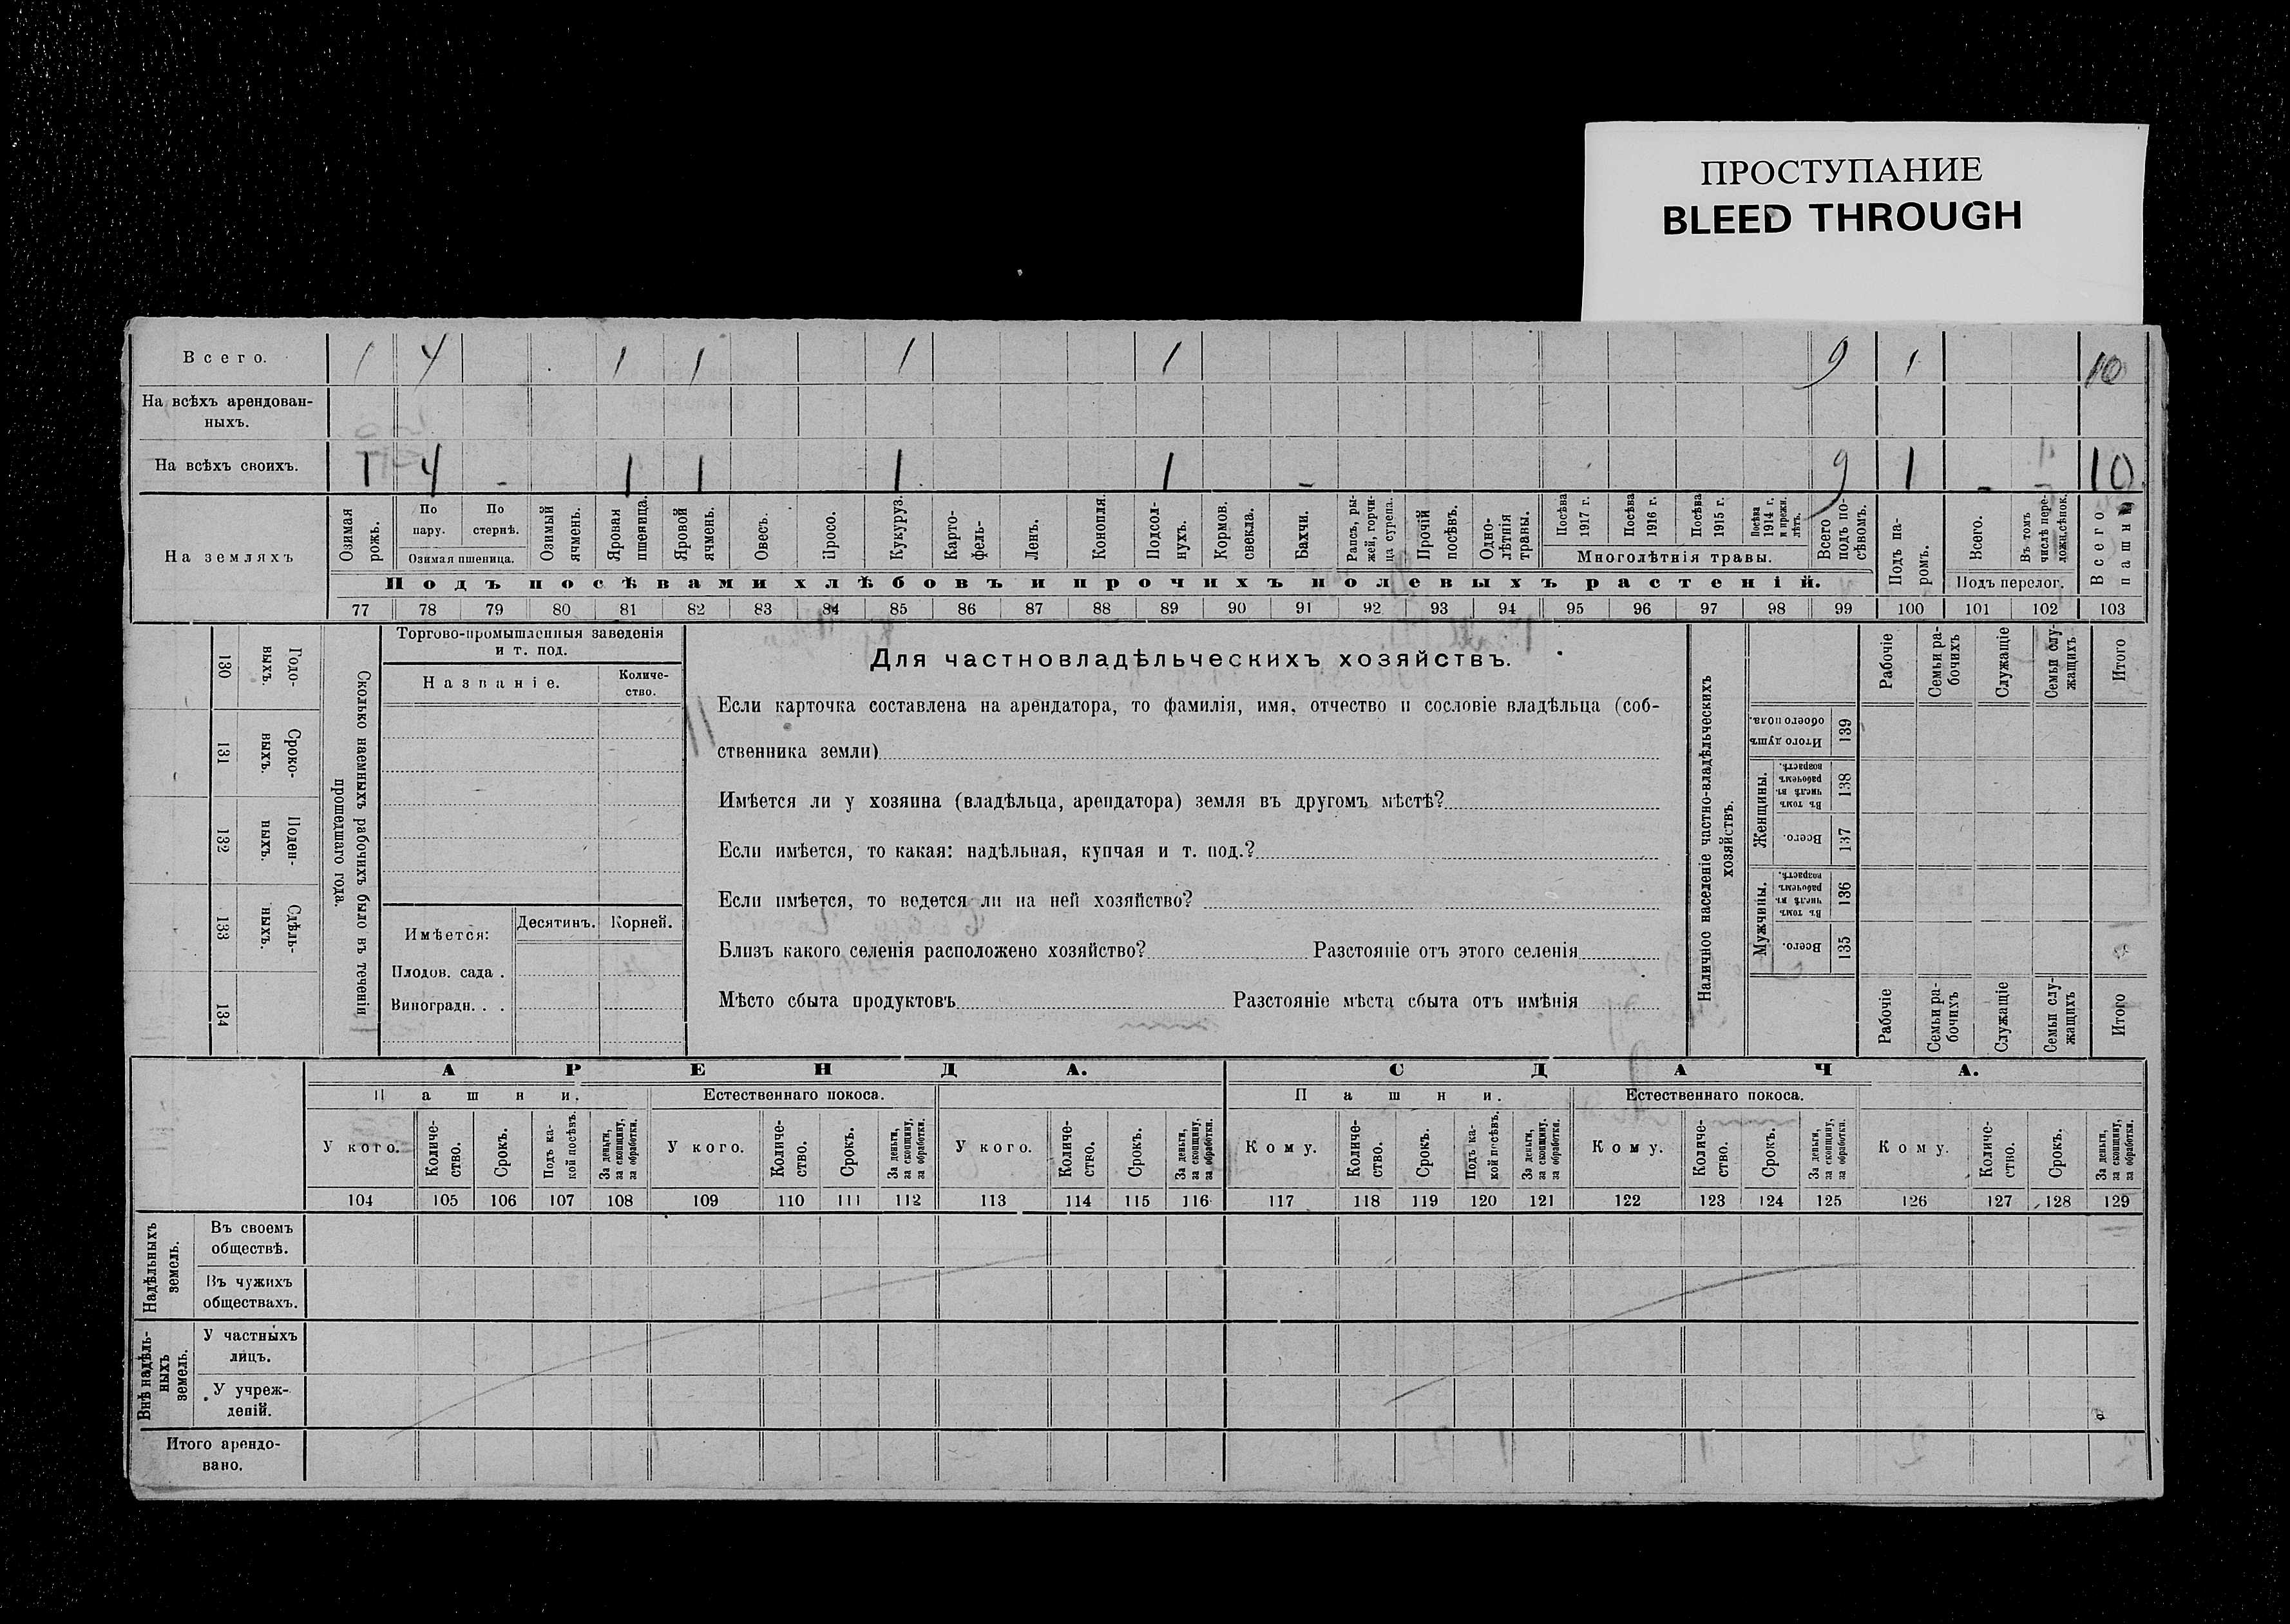 ПРОСТУПАНИЕ
BLEED THROUGH
Всего. 1 4 1 1 1 1 9 1 10
На всѣхъ арендован-
ныхъ.
На всѣхъ своихъ. 1 4 - 1 1 1 1 - 9 1 - - 10
На земляхъ
Озимая рожь.
По пару.
По стернѣ.
Озимая пшеница.
Озимый ячмень.
Яровая пшеница.
Яровой ячмень.
Овесъ.
Просо.
Кукуруз.
Карто-
фель-
Ленъ.
Конопля.
Подсол-
нухъ.
Кормов.
свекла.
Бахчи.
Рапсъ, ры-
жей, горчи-
ца сурепа.
Прочій
посѣвъ.
Одно-
лѣтнія
травы.
Посѣва
1917 г.
Посѣва
1916 г.
Посѣва
1915 г.
Посѣва
1914 г.
и прежн.
лѣтъ.
Многолѣтнія травы.
Всего
подъ по-
сѣвомъ.
Подъ па-
ромъ.
Всего.
Въ томъ
числѣ пере-
ложн. сѣнок.
Подъ перелог.
Всего
пашни
Подъ посѣвами хлѣбовъ и прочихъ полевыхъ растеній.
77 78 79 80 81 82 83 84 85 86 87 88 89 90 91 92 93 94 95 96 97 98 99 100 101 102 103
130 Годо-
выхъ.
131 Сроко-
выхъ.
132 Поден-
ныхъ.
133 Сдѣль-
ныхъ.
134
Сколько наемныхъ рабочихъ было въ теченіи
прошедшаго года.
Торгово-промышленныя заведенія
и т. под.
Названіе.
Количе-
ство.
Имѣется:
Десятинъ.
Корней.
Плодов. сада .
Виноградн. . .
Для частновладѣльческихъ хозяйствъ.
Если карточка составлена на арендатора, то фамилія, имя, отчество и сословіе владѣльца (соб-
ственника земли)
Имѣется ли у хозяина (владѣльца, арендатора) земля въ другомъ мѣстѣ?
Если имѣется, то какая: надѣльная, купчая и т. под.?
Если имѣется, то ведется ли на ней хозяйство?
Близъ какого селенія расположено хозяйство? Разстояніе отъ этого селенія
Мѣсто сбыта продуктовъ Разстояніе мѣста сбыта отъ имѣнія
Наличное населеніе частно-владѣльческихъ
хозяйствъ.
Рабочіе
Семьи ра-
бочихъ
Служащіе
Семьи слу-
жащихъ
Итого
Итого душъ
обоего пола.
139
Женщины.
Въ томъ
числѣ въ
рабочемъ
возрастѣ.
138
Всего.
137
Мужчины.
Въ томъ
числѣ въ
рабочемъ
возрастѣ.
136
Всего.
135
Рабочіе
Семьи ра-
бочихъ
Служащіе
Семьи слу-
жащихъ
Итого
АРЕНДА.
СДАЧА.
Пашни.
Естественнаго покоса.
Пашни.
Естественнаго покоса.
У кого.
Количе-
ство.
Срокъ.
Подъ ка-
кой посѣвъ.
За деньги,
за скопщину,
за обработки.
У кого.
Количе-
ство.
Срокъ.
За деньги,
за скопщину,
за обработки.
У кого.
Количе-
ство.
Срокъ.
За деньги,
за скопщину,
за обработки.
Кому.
Количе-
ство.
Срокъ.
Подъ ка-
кой посѣвъ.
За деньги,
за скопщину,
за обработки.
Кому.
Количе-
ство.
Срокъ.
За деньги,
за скопщину,
за обработки.
Кому.
Количе-
ство.
Срокъ.
За деньги,
за скопщину,
за обработки.
104 105 106 107 108 109 110 111 112 113 114 115 116 117 118 119 120 121 122 123 124 125 126 127 128 129
Надѣльныхъ
земель.
Въ своемъ
обществѣ.
Въ чужихъ
обществахъ.
Внѣ надѣль-
ныхъ
земель.
У частныхъ
лицъ.
У учреж-
деній.
Итого арендо-
вано.